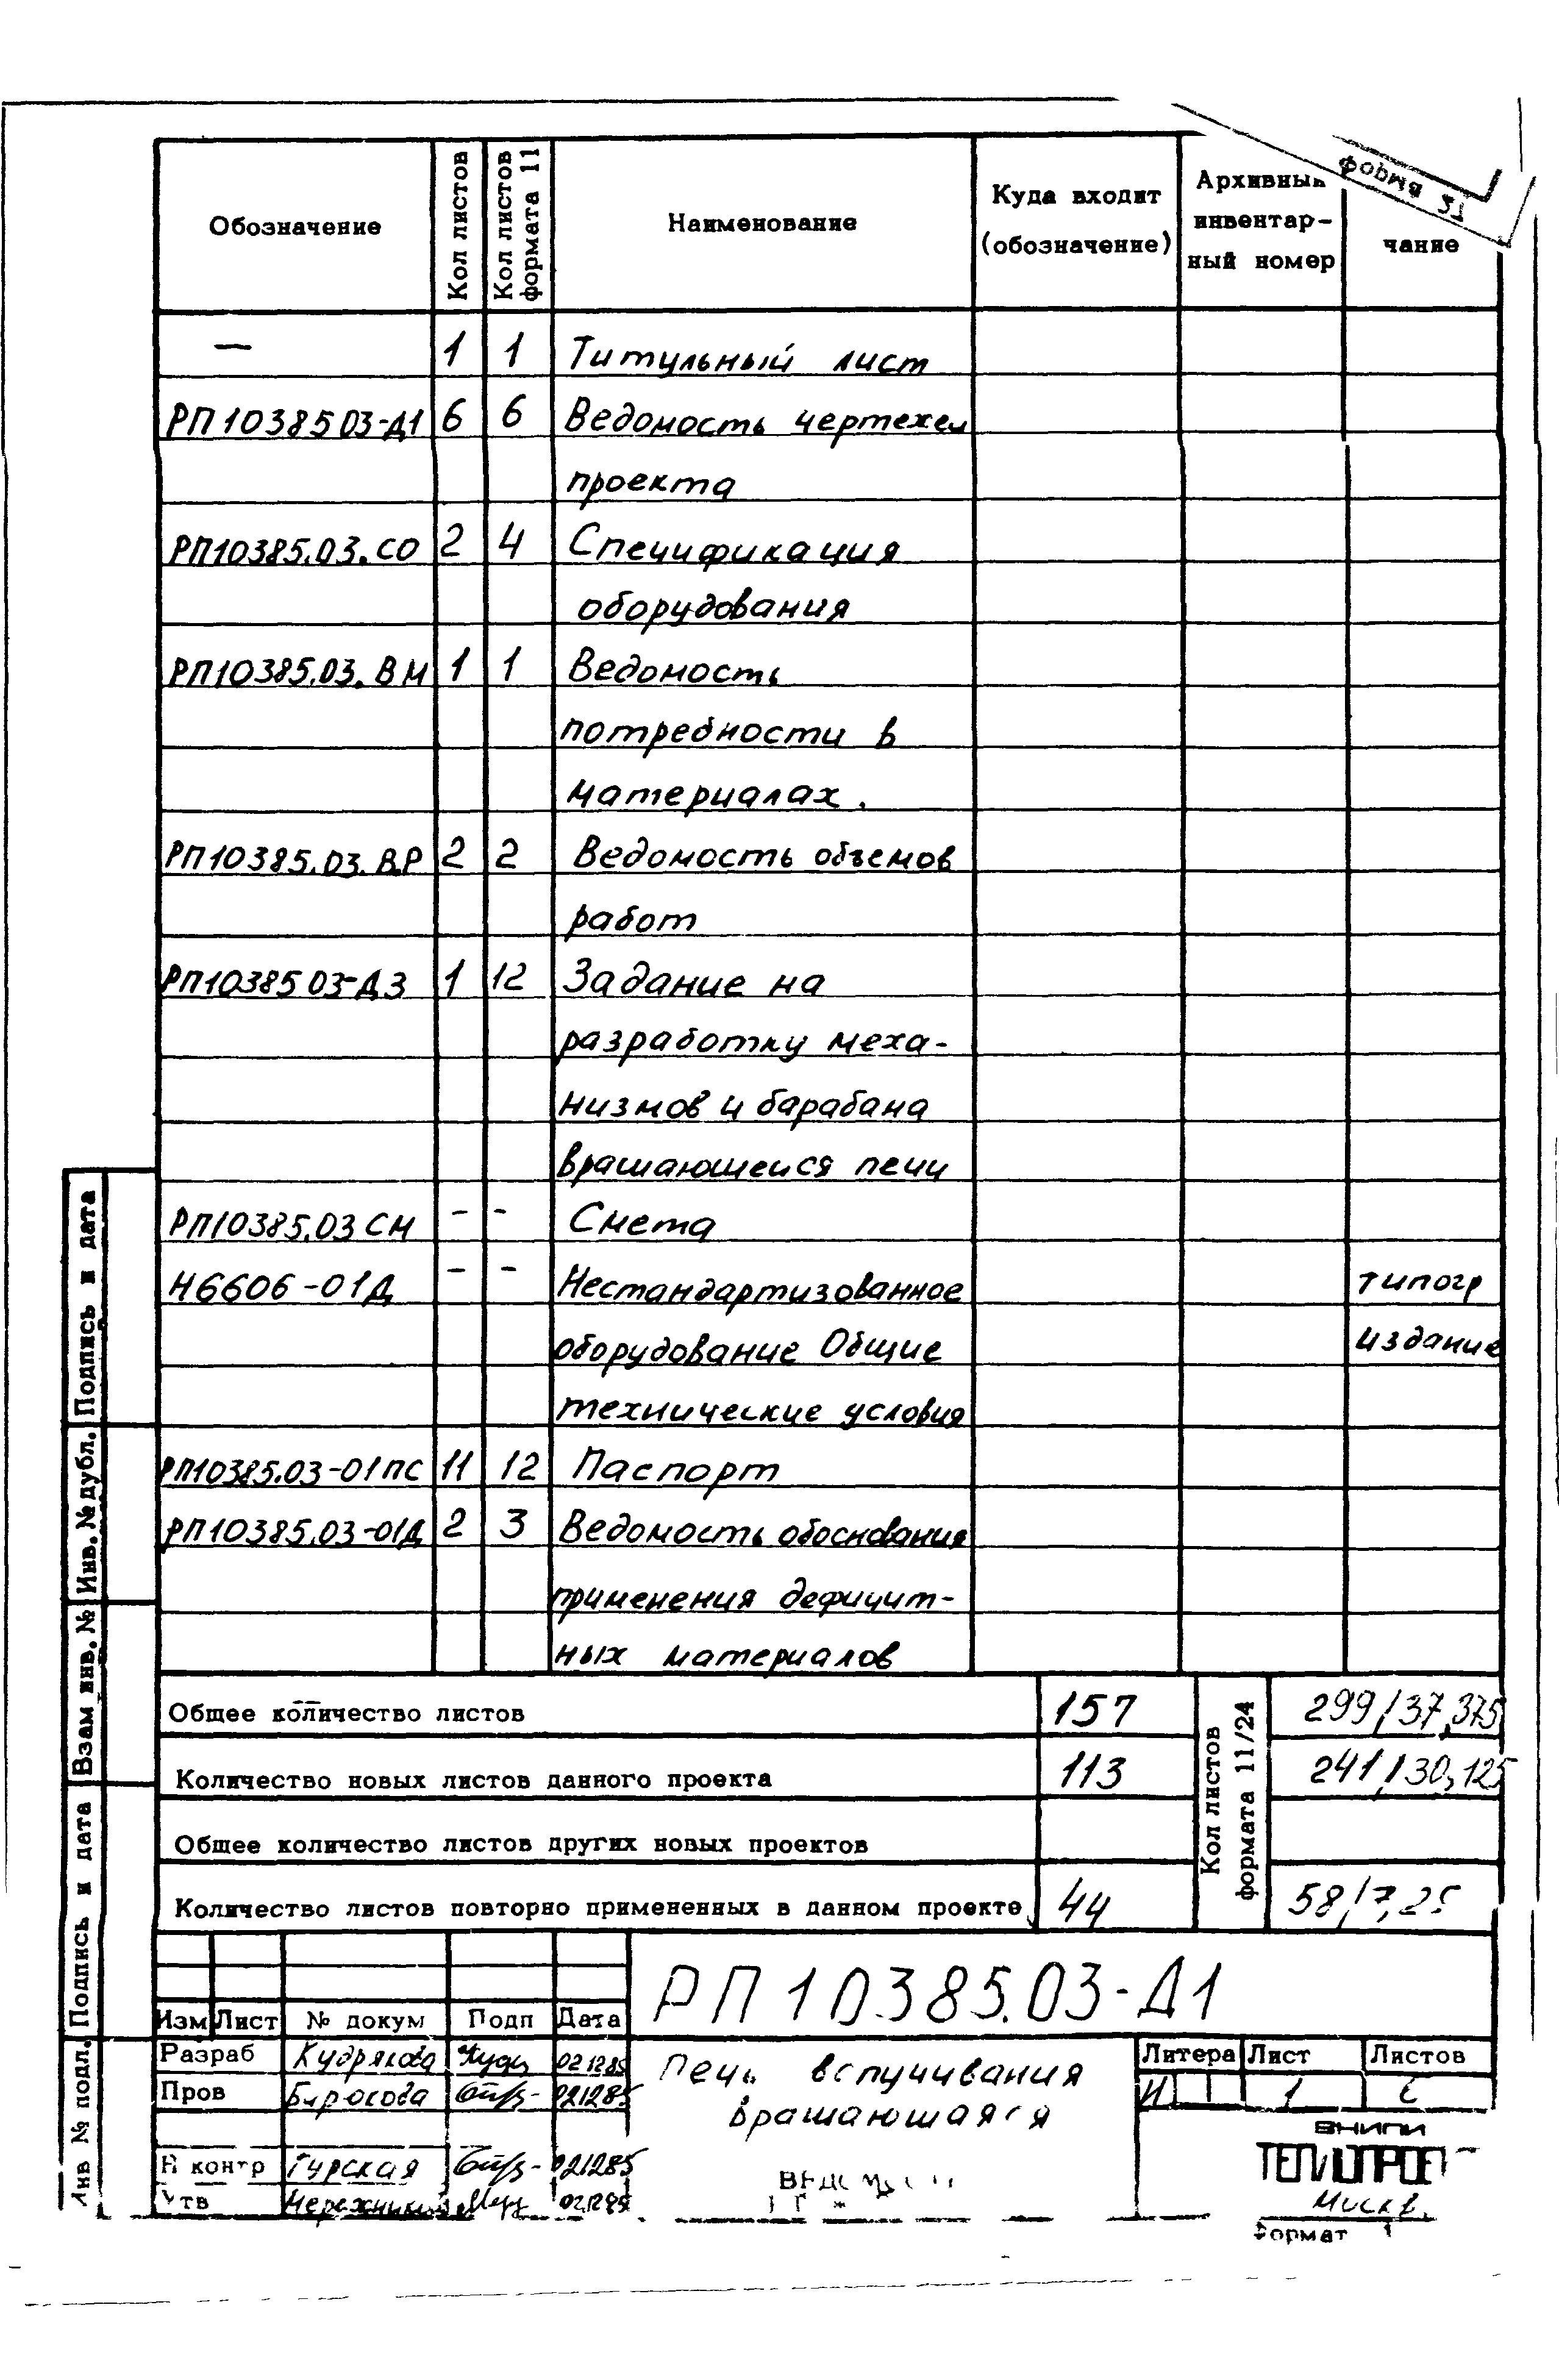 форма 31
Обозначение
Кол листов
Кол листов формата 11
Наименование
Куда входит (обозначение)
Архивный инвентар-ный номер
чание
— 1 1 Титульный лист
РП1038503-Д1 6 6 Ведомость чертежей
проекта
РП10385.03.СО 2 4 Спецификация
оборудования
РП10385.03.ВМ 1 1 Ведомость
потребности в
материалах.
РП10385.03.ВР 2 2 Ведомость объемов
работ
РП1038503-Д3 1 12 Задание на
разработку меха-
низмов и барабана
вращающейся печи
РП10385.03 СМ - - Смета
Н6606-01Д - - Нестандартизованное типогр
оборудование Общие издание
технические условия
РП10385.03-01ПС 11 12 Паспорт
РП10385.03-01Д 2 3 Ведомость обоснования
применения дефицит-
ных материалов
Общее количество листов 157 299/37,375
Количество новых листов данного проекта 113 241/30,125
Общее количество листов других новых проектов
Количество листов повторно примененных в данном проекте 44 58/7,25
Кол листов формата 11/24
РП10385.03-Д1
Изм Лист № докум Подп Дата
Разраб Кудрякова 021285
Пров Бирюкова 021285
Н контр Гурская 021285
Утв 021285
Печь вспучивания
вращающаяся
Литера Лист Листов
И 1
ВНИПИ
ТЕПЛОПРОЕКТ
Москва
Формат
Подпись и дата
Инв. № дубл.
Взам инв. №
Подпись и дата
Инв № подл.